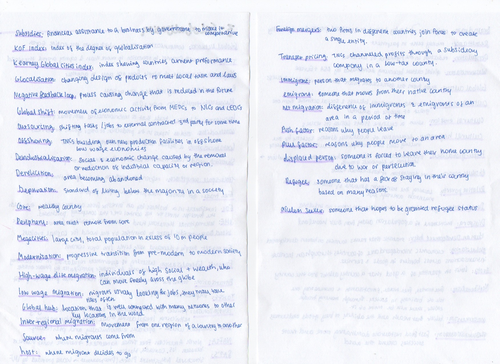 Subsidies: financial assistance to a business by government to make it competitive
KOF index: index of the degree of globalisation
Kearney Global Cities index: index showing countries current performance
Glocalisation: changing design of products to meet local wants and laws
Negative feedback loop: process causing change that is reduced in the future
Global shift: movement of economic activity from MEDCs to NICs and LEDCs
Outsourcing: shifting tasks / jobs to external contractor 3rd party for some time
Offshoring: TNCs building own new production facilities in offshore
low wage economies
Deindustrialisation: social & economic change caused by the removal
or reduction of industrial capacity or region.
Dereliction: area becoming abandoned
Deprivation: standard of living below the majority in a society
Core: wealthy country
Periphery: area most remote from core
Megacities: large city, total population in excess of 10m people
Modernisation: progressive transition from pre-modern to modern society
High-wage elite migration: individuals of high social + wealth, who
can move freely across the globe
Low wage migration: migrant usually looking for jobs, they may have
Global hub: location that is well connected with many services to other
key locations in the world
Inter-regional migration: movement from one region of a country to another
Source: where migrants come from
Host: where migrant decides to go
Foreign mergers: two firms in different countries join forces to create
a single entity.
Transfer pricing: TNCs channelled profits through a subsidiary
company in a low-tax country.
Immigrant: person that migrates to another country
Emigrant: someone that moves from their native country
Net migration: difference of immigrants & emigrants of an
area in a period of time
Push factor: reasons why people leave
Pull factor: reasons why people move to an area
Displaced person: someone is forced to leave their home country
due to war or persecution
Refugee: someone that has a fear of staying in their country
based on many reasons
Asylum Seeker: someone that hopes to be granted refugee status